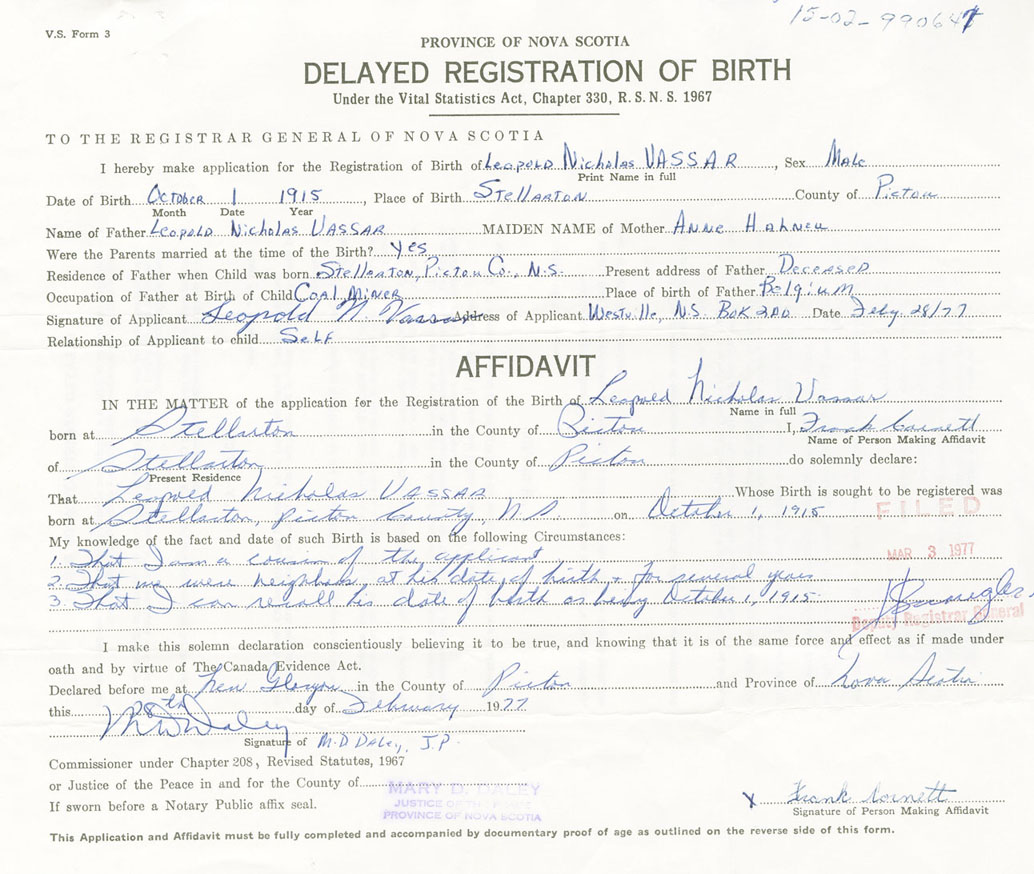 15-02-990647
V.S. Form 3
PROVINCE OF NOVA SCOTIA
DELAYED REGISTRATION OF BIRTH
Under the Vital Statistics Act, Chapter 330, R.S.N.S. 1967
TO THE REGISTRAR GENERAL OF NOVA SCOTIA
I hereby make application for the Registration of Birth of Leopold Nicholas VASSAR, Sex Male
Print Name in full
Date of Birth October 1 1915, Place of Birth Stellarton County of Pictou
Month Date Year
Name of Father Leopold Nicholas VASSAR MAIDEN NAME of Mother Anne
Were the Parents married at the time of the Birth? Yes
Residence of Father when Child was born Stellarton, Pictou Co., N.S. Present address of Father Deceased
Occupation of Father at Birth of Child Coal Miner Place of birth of Father Belgium
Signature of Applicant Leopold N. Vassar Address of Applicant Westville, N.S. BOK 2AO Date Feby. 28/77
Relationship of Applicant to child Self
AFFIDAVIT
IN THE MATTER of the application for the Registration of the Birth of Leopold Nicholas Vassar
Name in full
born at Stellarton in the County of Pictou I, Frank Cornett
Name of Person Making Affidavit
of Stellarton in the County of Pictou do solemnly declare:
Present Residence
That Leopold Nicholas VASSAR Whose Birth is sought to be registered was
born at Stellarton, Pictou County, N.S. on October 1, 1915
FILED
My knowledge of the fact and date of such Birth is based on the following Circumstances:
MAR 3 1977
1. That I am a cousin of the applicant
2. That we were neighbors, at his date of birth + for several years
3. That I can recall his date of birth as being October 1, 1915.
Deputy Registrar General
I make this solemn declaration conscientiously believing it to be true, and knowing that it is of the same force and effect as if made under
oath and by virtue of The Canada Evidence Act.
Declared before me at New Glasgow in the County of Pictou and Province of Nova Scotia
this 28th day of February 1977
M D Daley
Signature of M.D Daley, J.P.
Commissioner under Chapter 208, Revised Statutes, 1967
or Justice of the Peace in and for the County of
MARY D. DALEY
JUSTICE OF THE PEACE
PROVINCE OF NOVA SCOTIA
If sworn before a Notary Public affix seal.
X Frank Cornett
Signature of Person Making Affidavit
This Application and Affidavit must be fully completed and accompanied by documentary proof of age as outlined on the reverse side of this form.